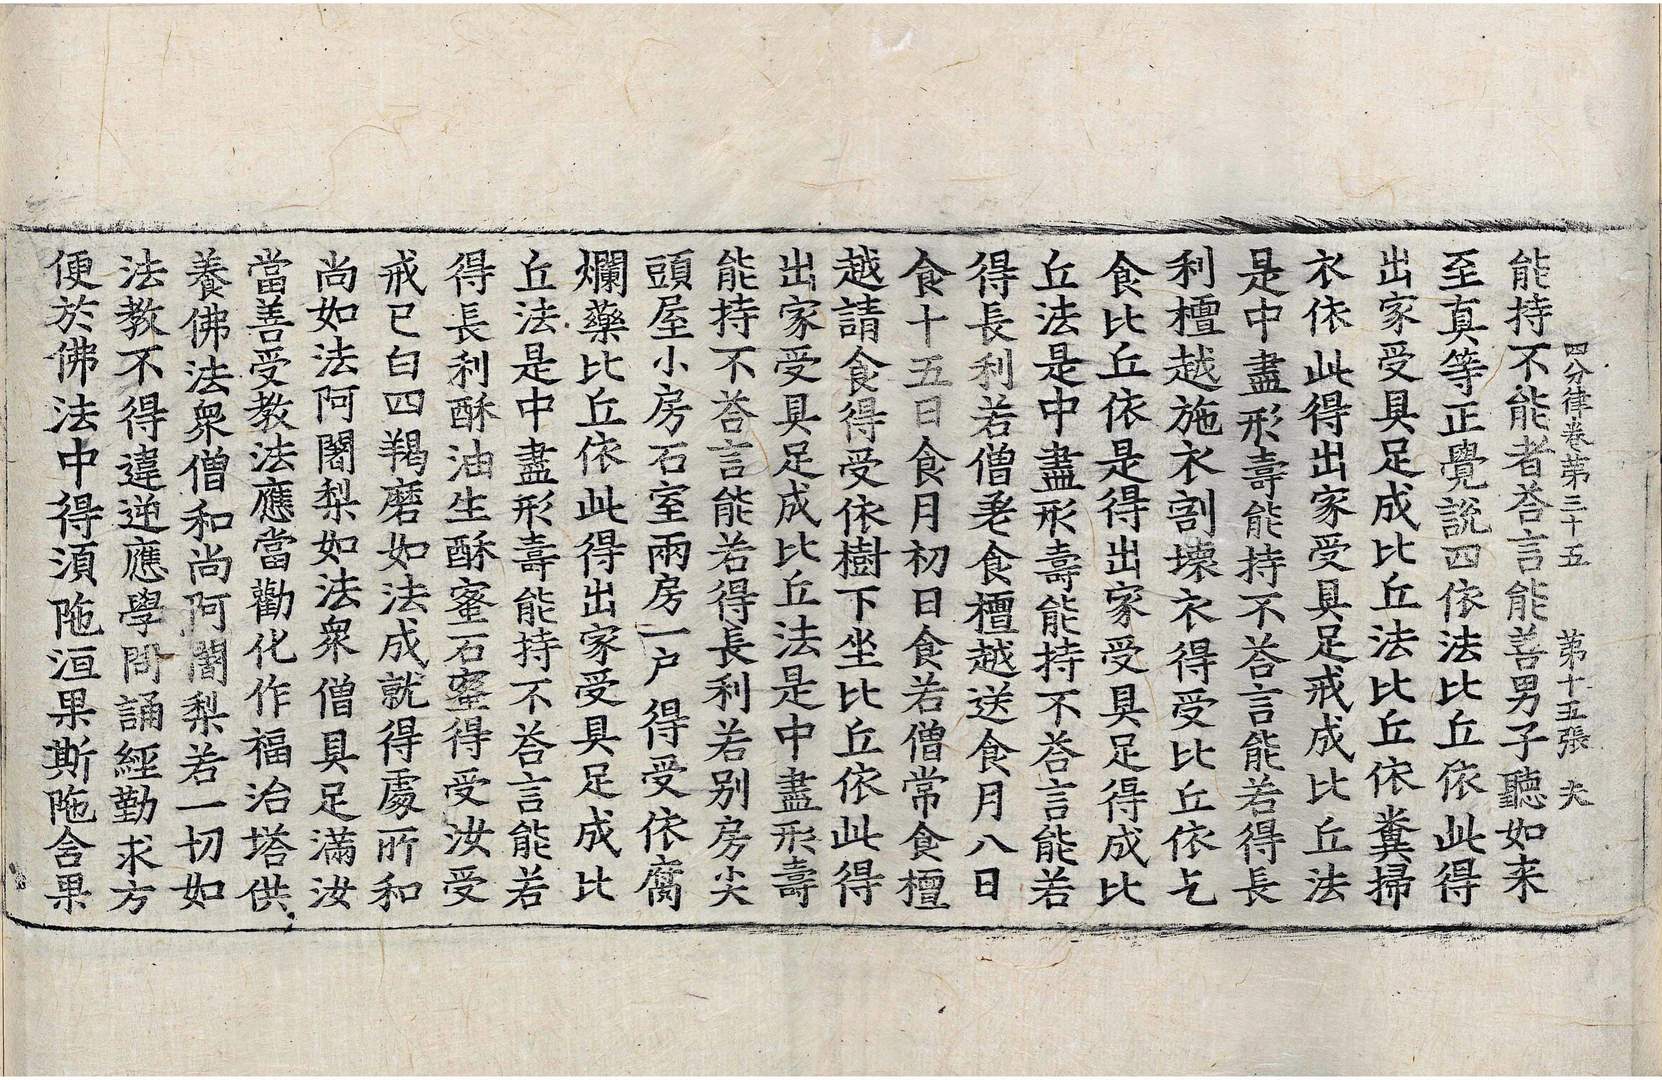 四分律卷第三十五 第十五張 夫
能持不能者荅言能善男子聽如来
至真等正覺說四依法比丘依此得
出家受具足成比丘法比丘依糞掃
衣依此得出家受具足戒成比丘法
是中盡形壽能持不荅言能若得長
利檀越施衣割壞衣得受比丘依乞
食比丘依是得出家受具足得成比
丘法是中盡形壽能持不荅言能若
得長利若僧差食檀越送食月八日
食十五日食月初日食若僧常食檀
越請食得受依樹下坐比丘依此得
出家受具足成比丘法是中盡形壽
能持不荅言能若得長利若别房尖
頭屋小房石室兩房一户得受依腐
爛藥比丘依此得出家受具足成比
丘法是中盡形壽能持不荅言能若
得長利酥油生酥蜜石蜜得受汝受
戒已白四羯磨如法成就得處所和
尚如法阿闍梨如法衆僧具足滿汝
當善受教法應當勸化作福治塔供
養佛法衆僧和尚阿闍梨若一切如
法教不得違逆應學問誦經勤求方
便於佛法中得湏陁洹果斯陁含果